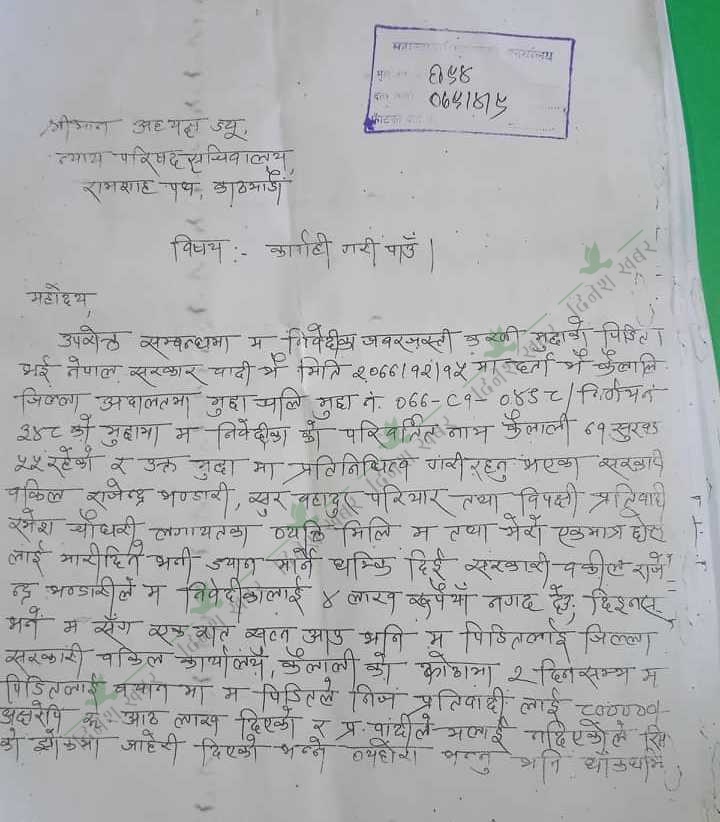 ६१५४
०६९।४।९
श्रीमान अध्यक्ष ज्यू,
न्याय परिषद सचिवालय,
रामशाह पथ, काठमाडौं
विषय :- कार्वाही गरी पाउँ ।
महोदय,
उपरोक्त सम्बन्धमा म निवेदीका जवरजस्ती करणी मुद्दाको पिडित
भई नेपाल सरकार वादी भै मिति २०६६।१२।१५ मा दर्ता भै कैलालि
जिल्ला अदालतमा मुद्दा चलि मुद्दा नं. ०६६-C१-
३४८ को मुद्दामा म निवेदीका को परिवर्तित नाम कैलाली
५५ रहेको र उक्त मुद्दा मा प्रतिनिधित्व गरी रहनु भएका सरकारी
वकिल राजेन्द्र भण्डारी, सुर वहादुर परियार तथा विपक्षी प्रतिवादी
रमेश चौधरी लगायतका व्यक्ति मिलि म तथा मेरो एकमात्र छोरा
लाई मारीदिने भनी ज्यान मार्ने धम्कि दिई सरकारी वकील राजे
न्द्र भण्डारीले म निवेदीकालाई ४ लाख रूपैयाँ नगद देउ, दिइनस्
भने म सँग एक रात सुत्न आउ भनि म पिडितलाई जिल्ला
सरकारी वकिल कार्यालय, कैलाली को कोठामा २ दिन सम्म म
पिडितलाई वयान मा म पिडितले निज प्रतिवादी लाई ८०००००।-
अक्षरेपि रू आठ लाख दिएको र प्र. वादीले मलाई नदिएकोले रिस
को झोकमा जाहेरी दिएको भन्ने व्यहोरा भन्नु भनि
दिनेश खबर